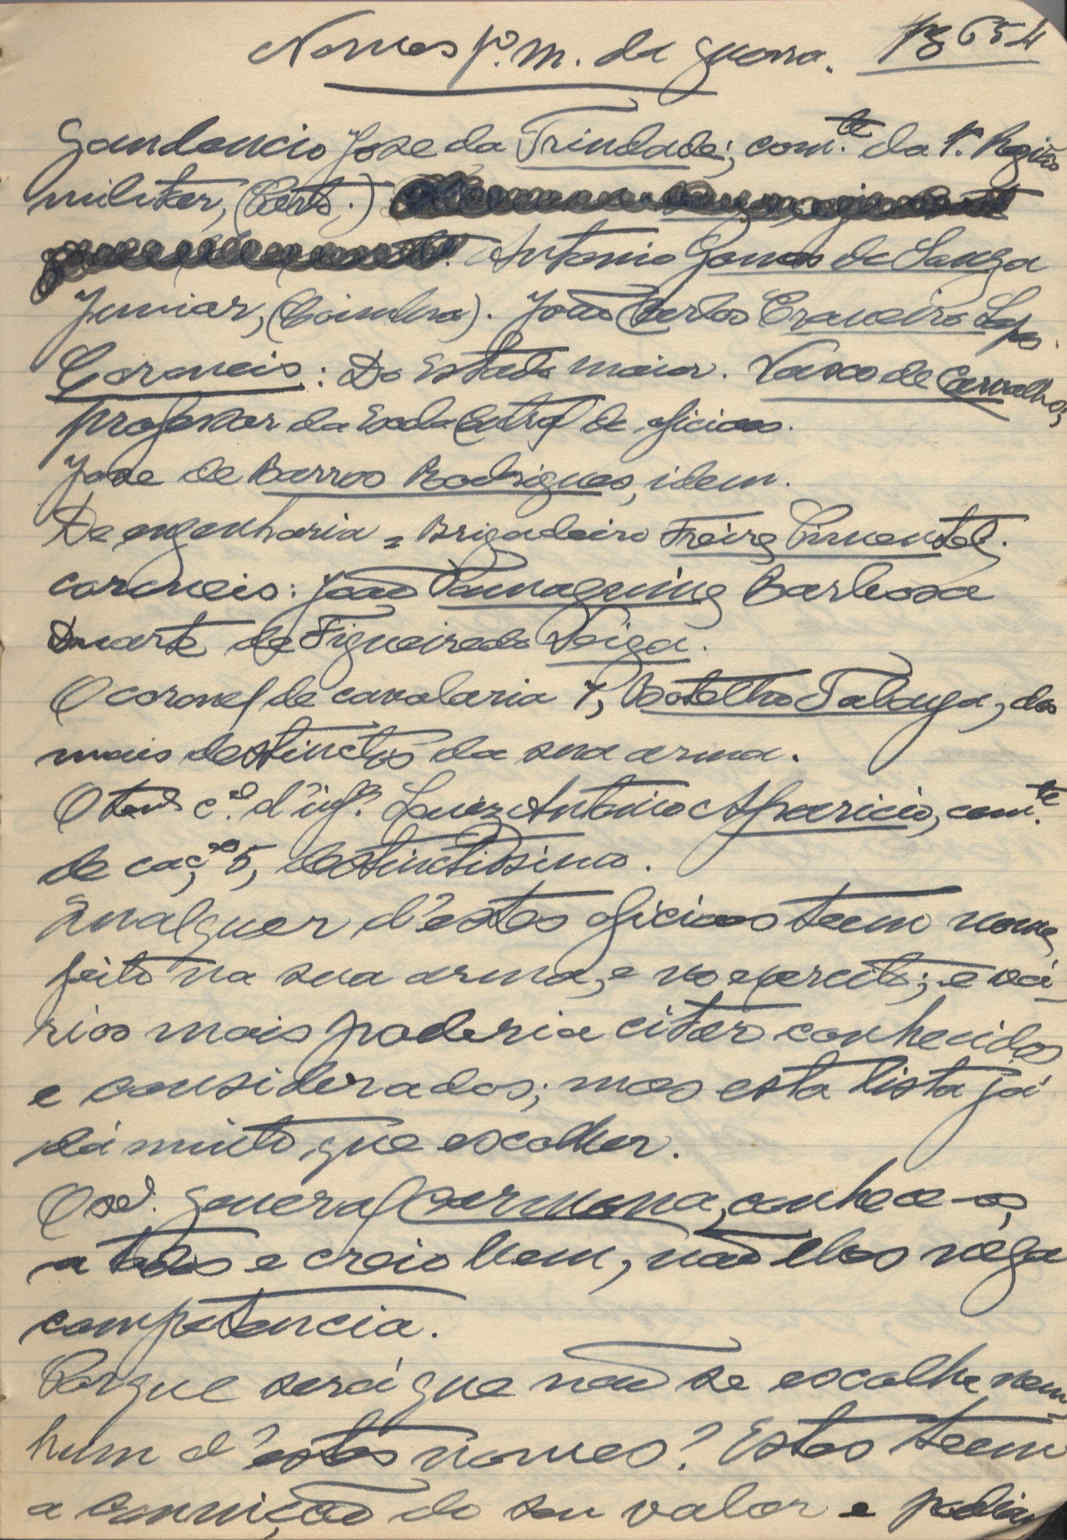 Nomes pª. m. da guerra. pg 654
Gaudencio Jose da Trindade; com.te da 1ª. Região
militar, (Porto.)
Antonio Gomes de Souza
Junior, (Coimbra). João Carlos Craveiro Lopes.
Coroneis: Do Estado maior. Vasco de Carvalho,
professor da Escola Central de oficiaes.
Jose de Barros Rodrigues, idem.
De engenharia = Brigadeiro Freire Pimentel.
coroneis: João Tamagnine Barbosa
Duarte de Figueiredo Veiga.
O coronel de cavalaria Botelho Tabaya, dos
mais destinctos da sua arma.
O ten.te c.el d'inf.ª Luiz Antonio Aparicio, com.te
de caç.es 5, destinctissimo.
Qualquer d'estes oficiaes teem nome
feito na sua arma, e no exercito; e vá-
rios mais poderia citar conhecidos
e considerados; mas esta lista já
dá muito que escolher.
O sr. General Carmona, conhece-os
a todos e creio bem, não lhes néga
competencia.
Porque será que não se escolhe nen-
hum d'estes nomes? Estes teem
a convicção do seu valor e podiam